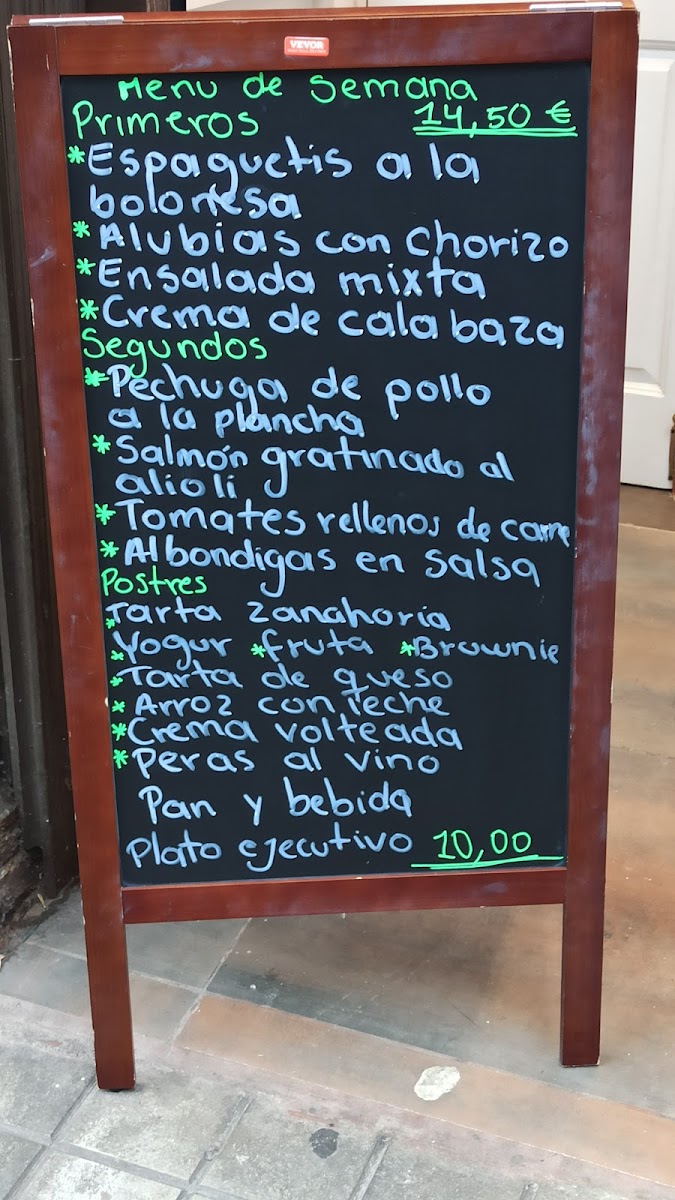 VEVOR
Menu de semana
Primeros 14,50 €
*Espaguetis a la
boloñesa
*Alubias con chorizo
*Ensalada mixta
*Crema de calabaza
Segundos
*Pechuga de pollo
a la plancha
*Salmón gratinado al
alioli
*Tomates rellenos de carne
*Albondigas en salsa
Postres
*Tarta zanahoria
*Yogur *fruta *Brownie
*Tarta de queso
*Arroz con leche
*Crema volteada
*Peras al vino
Pan y bebida
Plato ejecutivo 10,00